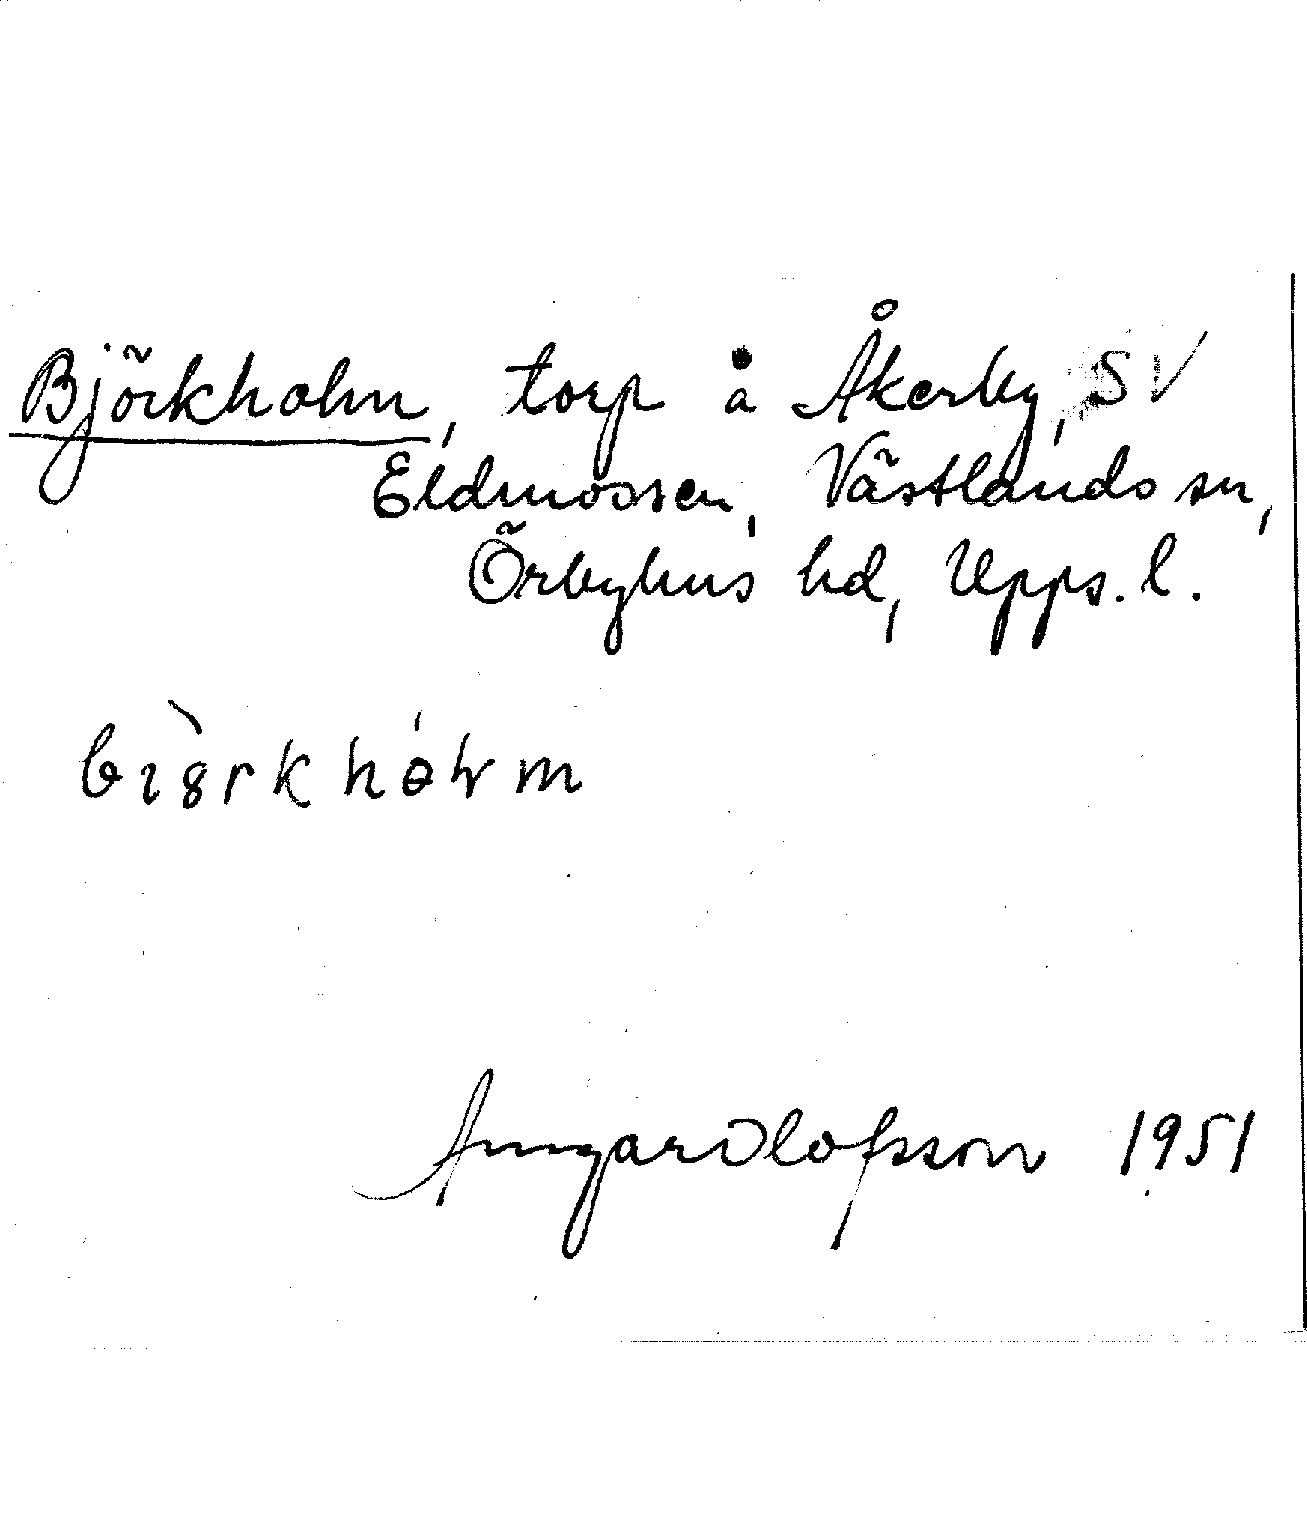 Björkholm, torp å Åkerby, SV
Eldmossen, Västlands sn,
Örbyhus hd, Upps. l.
Olofsson 1951